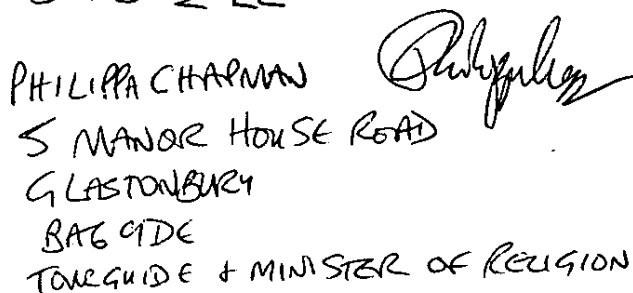 PHILIPPA CHAPMAN
5 MANOR HOUSE ROAD
GLASTONBURY
BA6 9DE
TOURGUIDE & MINISTER OF RELIGION